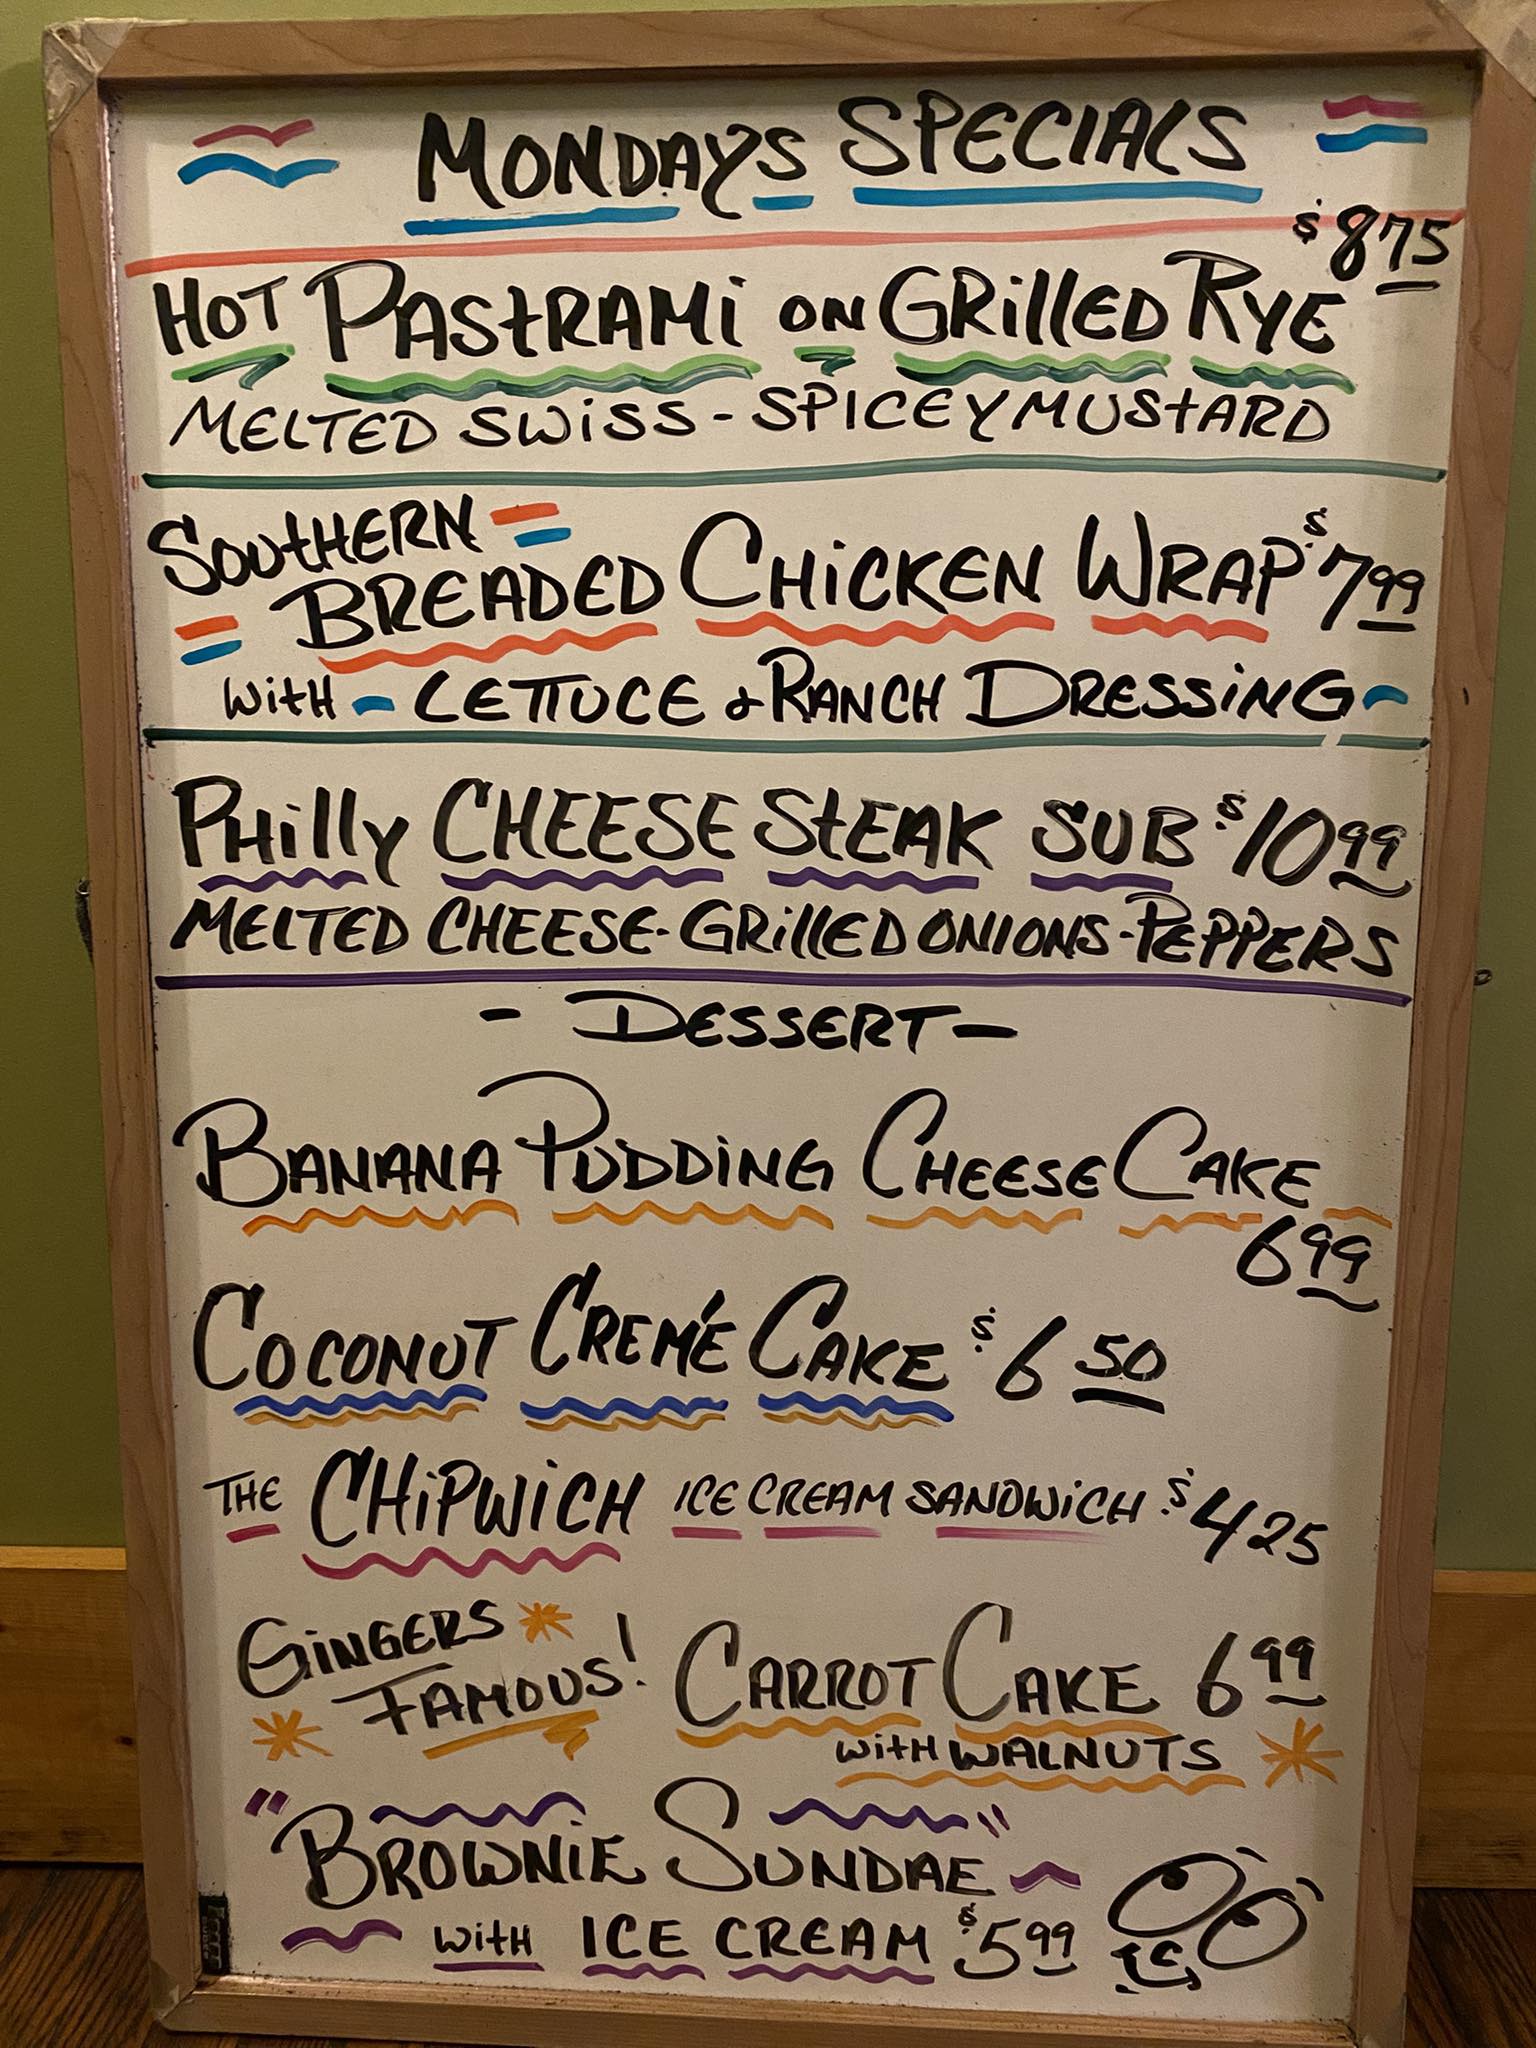 MONDAYS SPECIALS
$8.75
HOT PASTRAMI ON GRILLED RYE
MELTED SWISS - SPICEY MUSTARD
SOUTHERN
BREADED CHICKEN WRAP $7.99
WITH - LETTUCE & RANCH DRESSING -
PHILLY CHEESE STEAK SUB $10.99
MELTED CHEESE - GRILLED ONIONS - PEPPERS
- DESSERT -
BANANA PUDDING CHEESE CAKE
6.99
COCONUT CREMÉ CAKE $6.50
THE CHIPWICH ICE CREAM SANDWICH $4.25
GINGERS
FAMOUS! CARROT CAKE 6.99
WITH WALNUTS
"BROWNIE SUNDAE"
WITH ICE CREAM $5.99